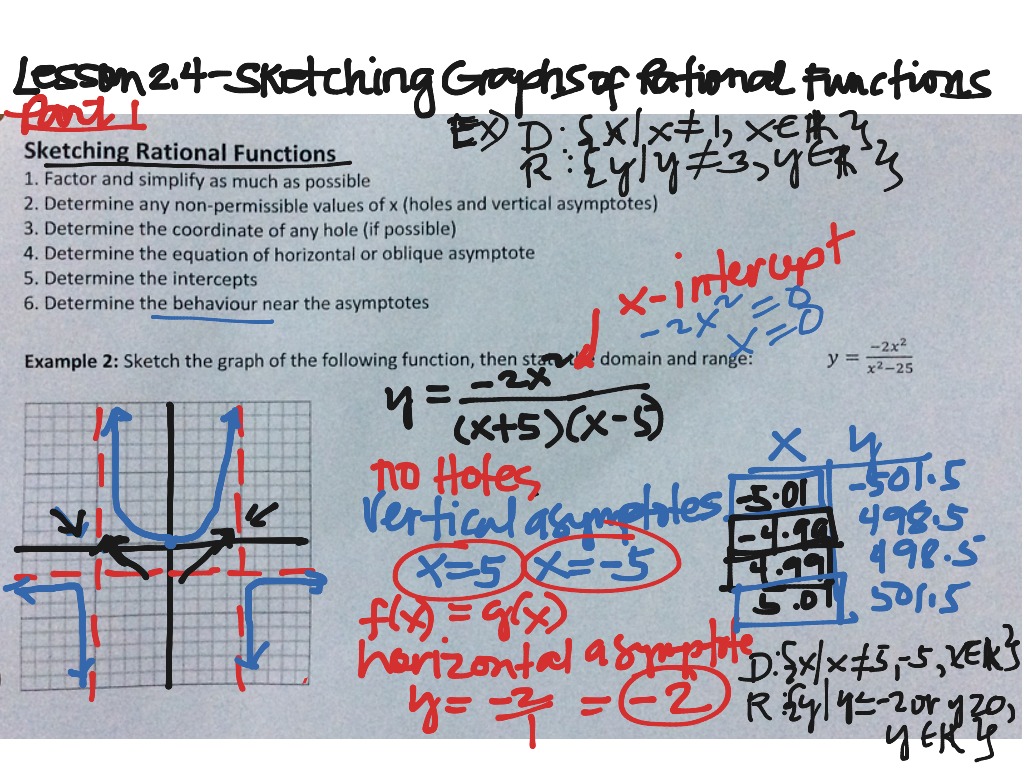 Lesson 2.4 - Sketching Graphs of Rational Functions
Part 1
Ex) D : {x | x ≠ 1, x ∈ R}
R : {y | y ≠ 3, y ∈ R}
Sketching Rational Functions
1. Factor and simplify as much as possible
2. Determine any non-permissible values of x (holes and vertical asymptotes)
3. Determine the coordinate of any hole (if possible)
4. Determine the equation of horizontal or oblique asymptote
5. Determine the intercepts
6. Determine the behaviour near the asymptotes
x-intercept
-2x² = 0
x = 0
Example 2: Sketch the graph of the following function, then state the domain and range: y = -2x² / x²-25
y = -2x² / (x+5)(x-5)
no Holes
Vertical asymptotes
x=5 x=-5
f(x) = g(x)
horizontal asymptote
y = -2/1 = -2
x y
-5.01 -501.5
-4.99 498.5
4.99 498.5
5.01 -501.5
D: {x | x ≠ 5, -5, x ∈ R}
R {y | y ≤ -2 or y ≥ 0,
y ∈ R}